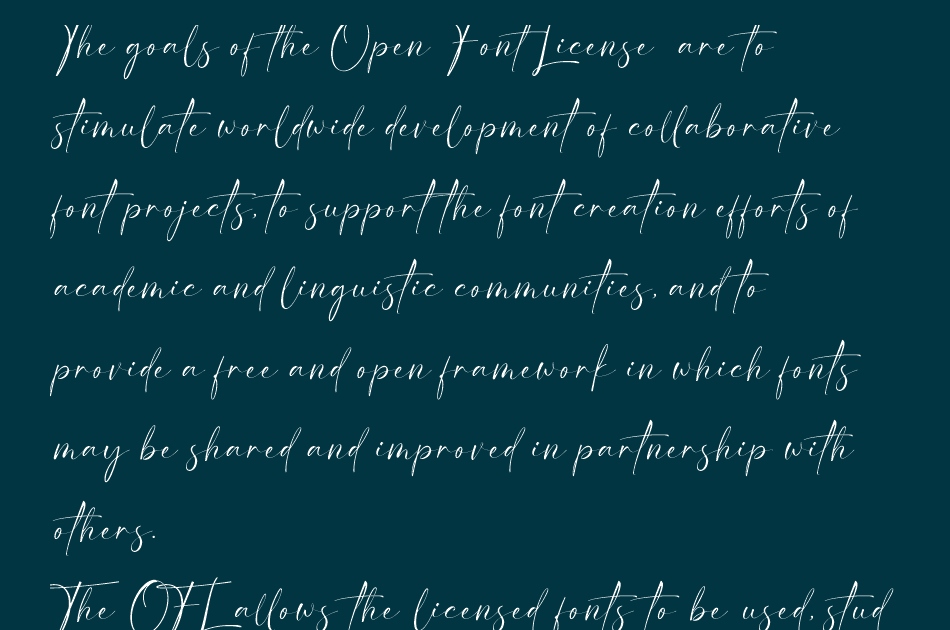 The goals of the Open Font License are to
stimulate worldwide development of collaborative
font projects, to support the font creation efforts of
academic and linguistic communities, and to
provide a free and open framework in which fonts
may be shared and improved in partnership with
others.
The OFL allows the licensed fonts to be used, stud